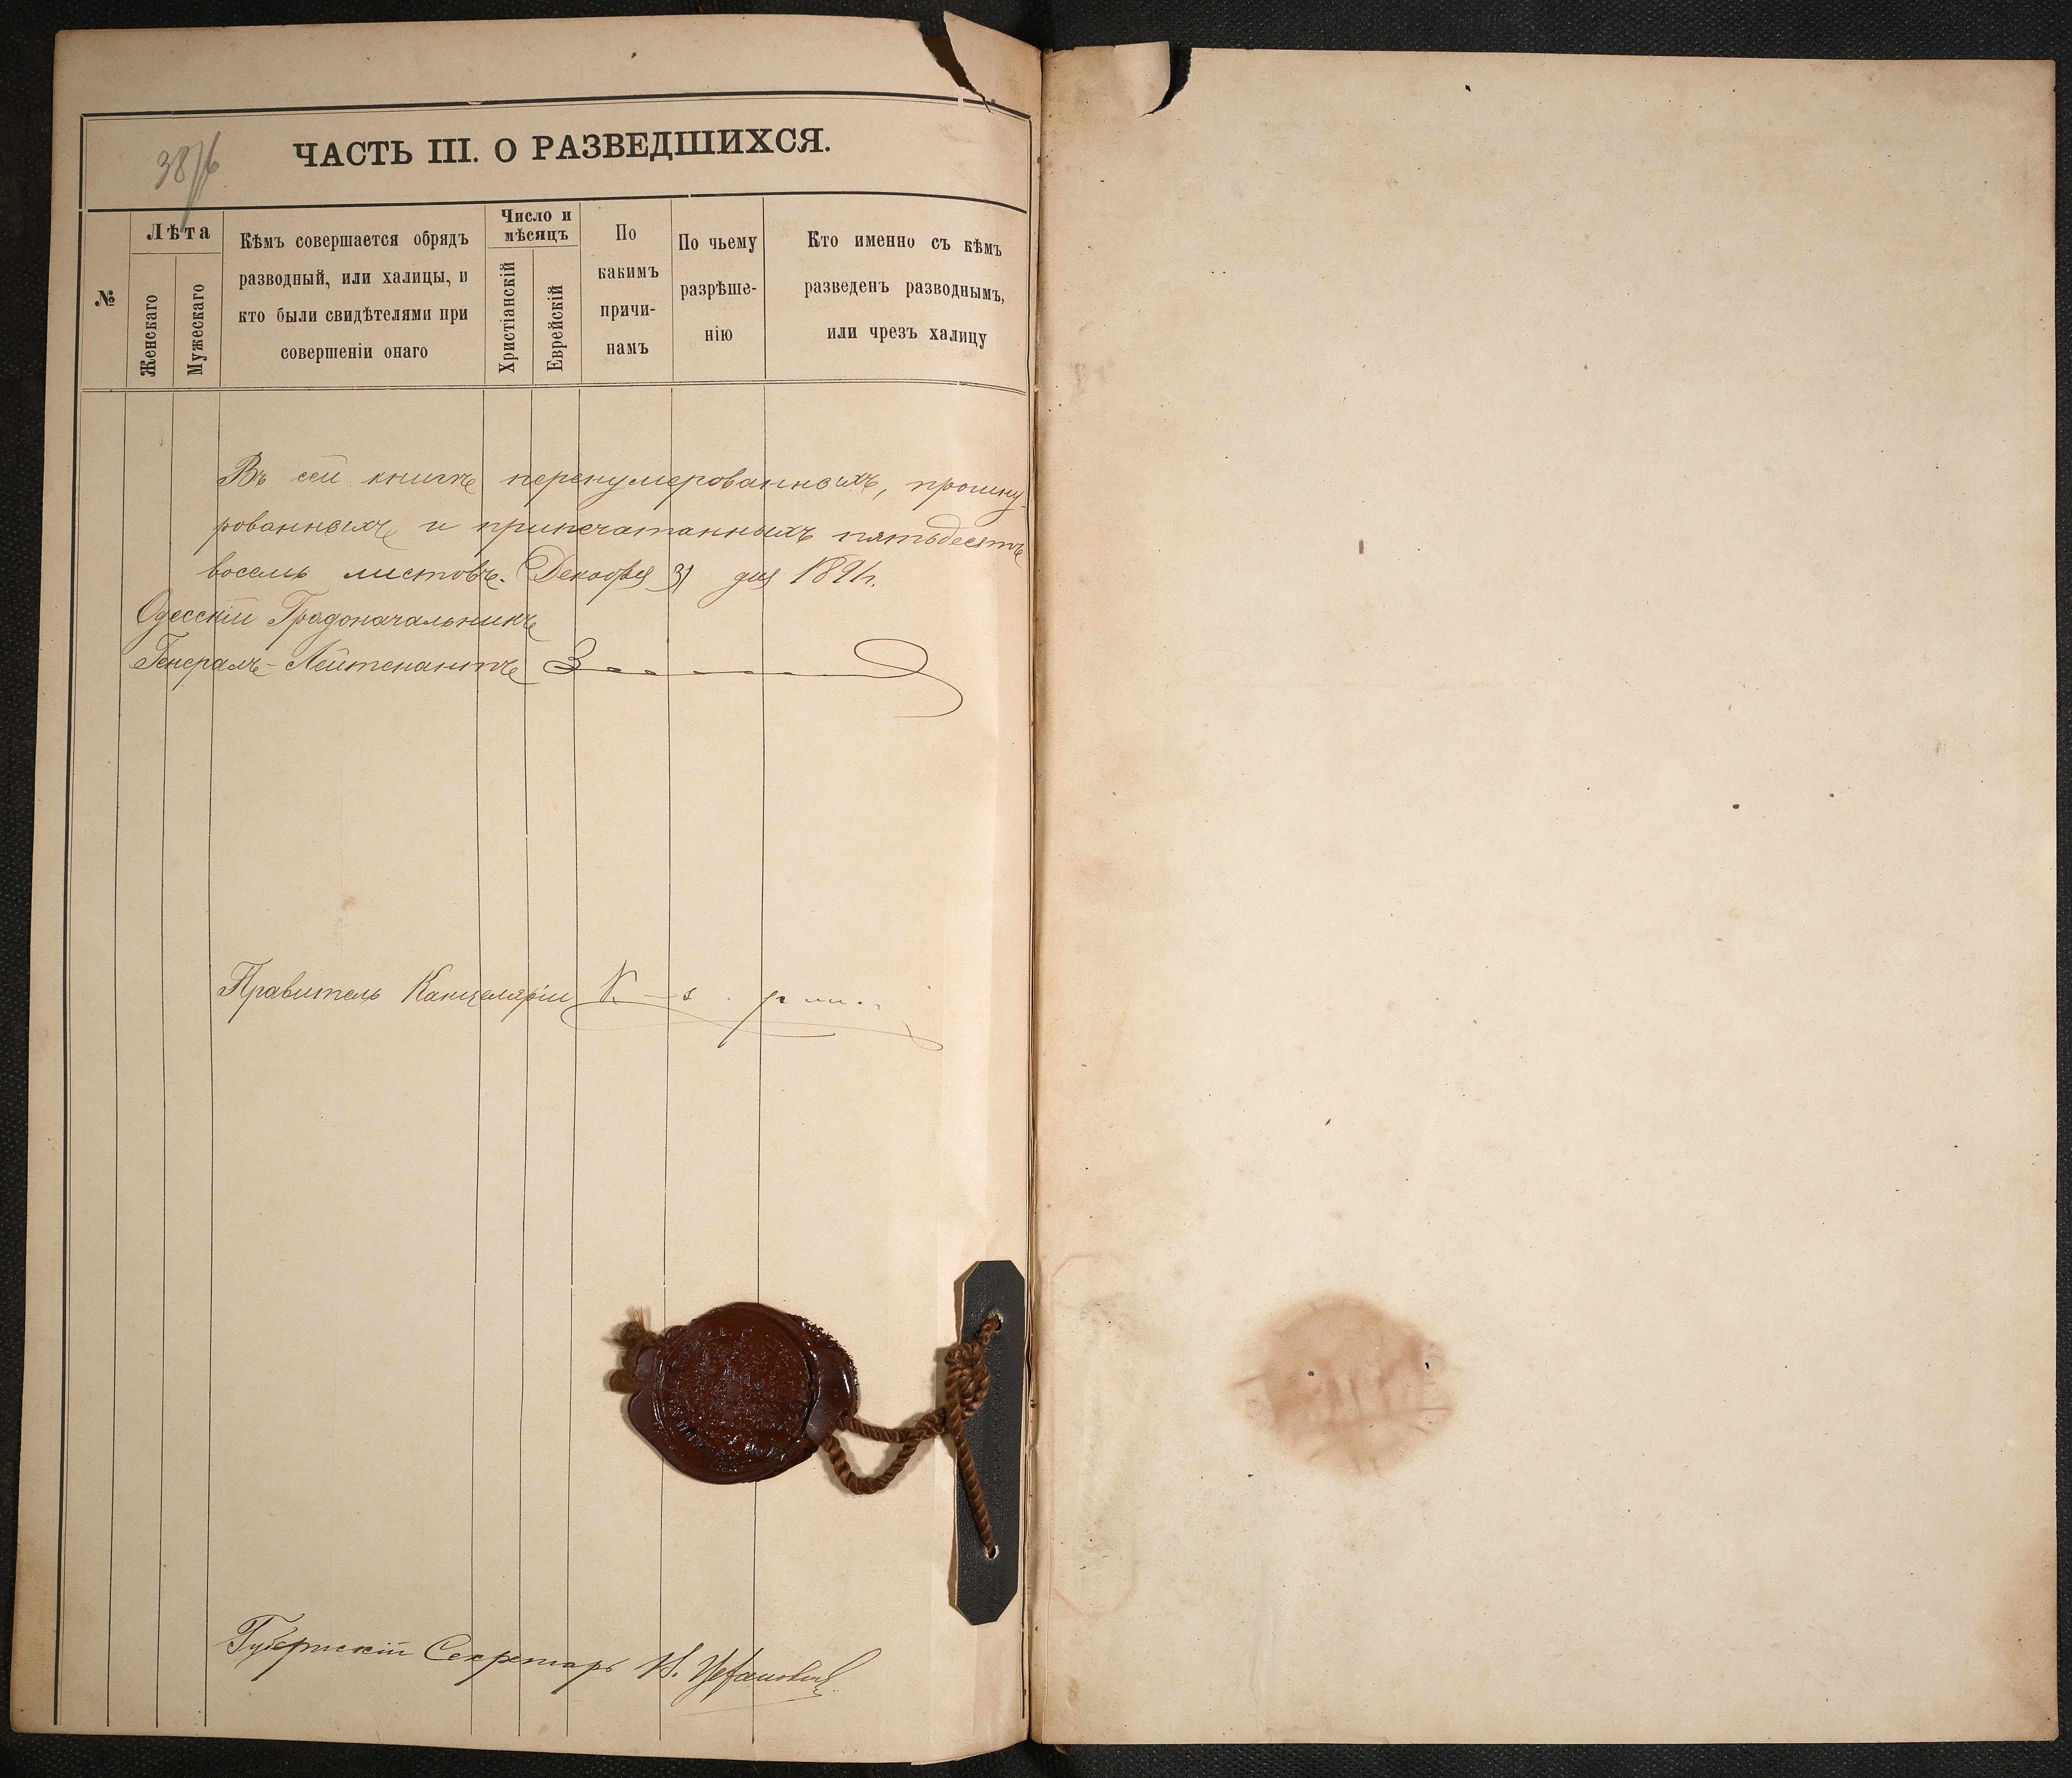 ЧАСТЬ III. О РАЗВЕДШИХСЯ.
№
Лѣта
Женскаго
Мужескаго
Кѣмъ совершается обрядъ
разводный, или халицы, и
кто были свидѣтелями при
совершеніи онаго
Число и
мѣсяцъ
Христіанскій
Еврейскій
По
какимъ
причи-
намъ
По чьему
разрѣше-
нію
Кто именно съ кѣмъ
разведенъ разводнымъ,
или чрезъ халицу
Въ сей книгѣ перенумерованныхъ, прошну-
рованныхъ и припечатанныхъ пятьдесятъ
восемь листовъ. Декабря 31 дня 1891 г.
Одесскій Градоначальникъ
Генералъ-Лейтенантъ
Правитель Канцеляріи
Губернскій Секретарь